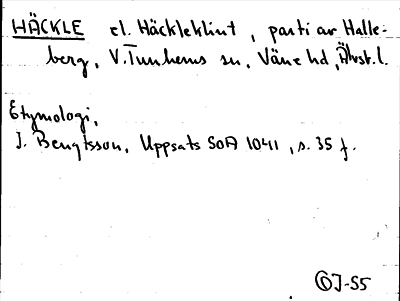 HÄCKLE el. Häckleklint, parti av Halle-
berg, V. Tunhems sn, Väne hd, Älvsb.l.
Etymologi,
J. Bengtsson, Uppsats SOA 1041, s. 35 f.
ⒷJ-55